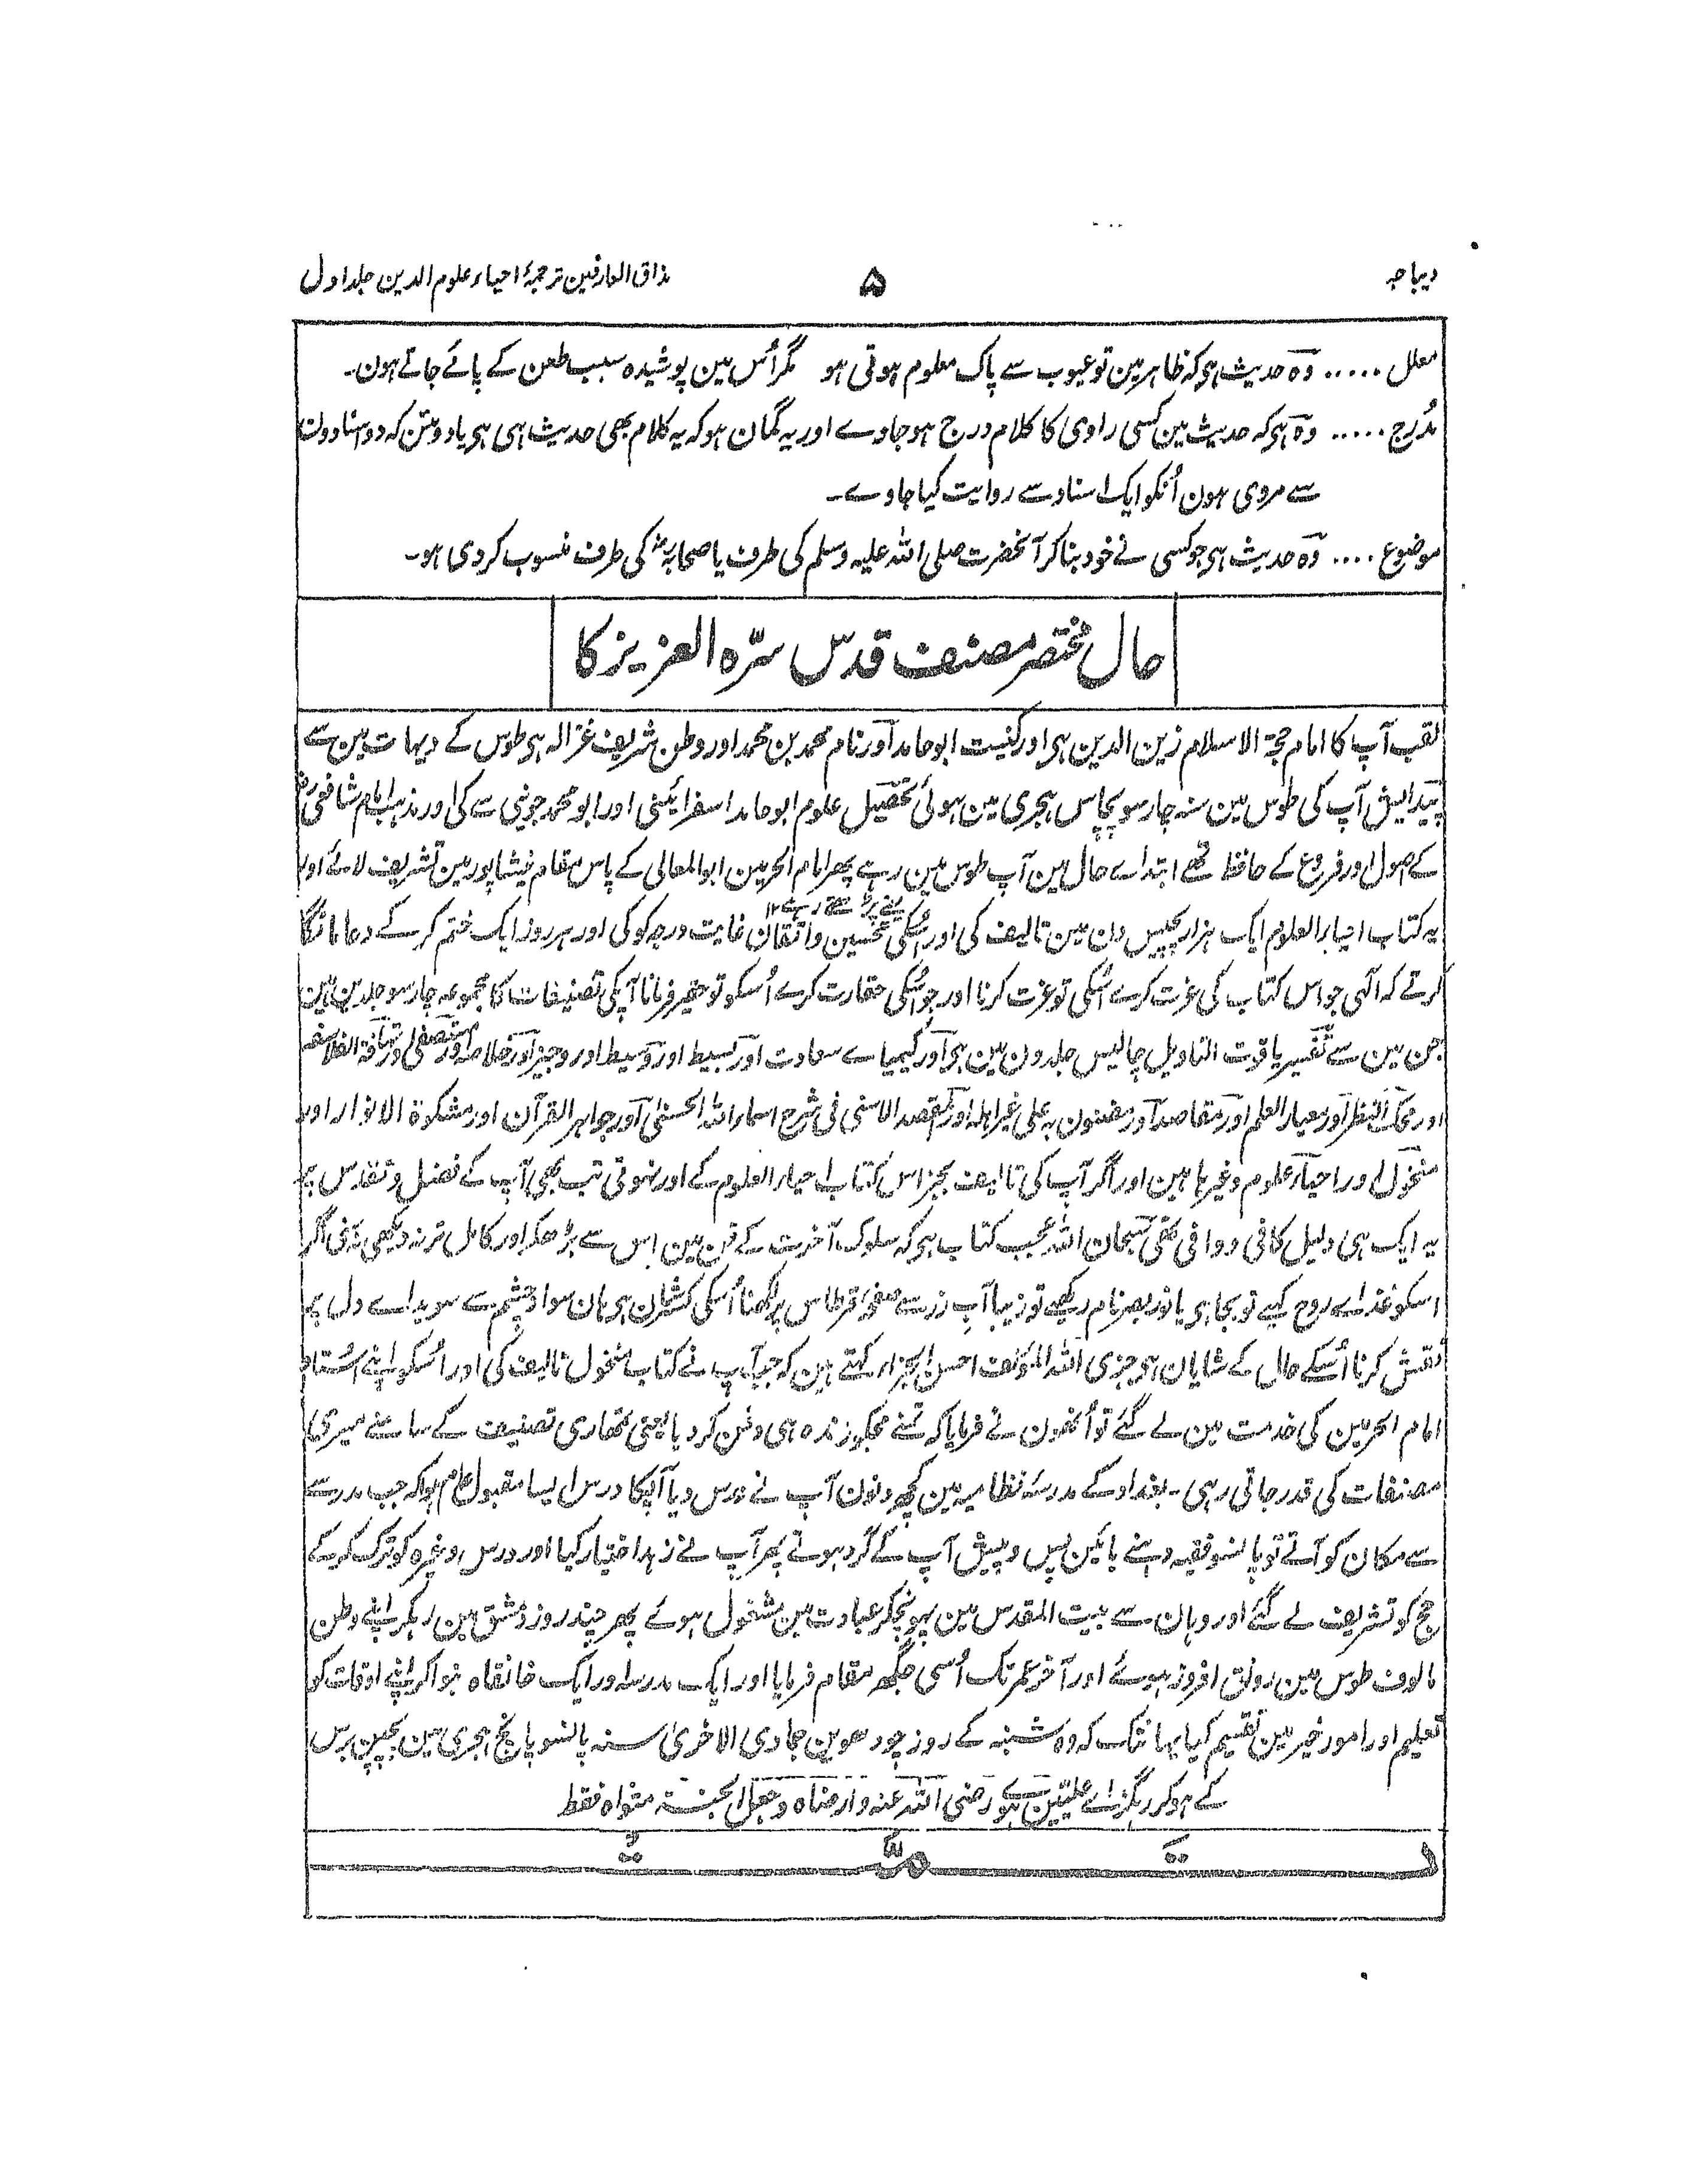 دیباچہ ۵ مذاق العارفین ترجمۂ احیاء علوم الدین جلد اول
معلل ..... وہ حدیث ہی کہ ظاہر مین تو عیوب سے پاک معلوم ہوتی ہو مگر اُس مین پوشیدہ سبب طعن کے پائے جاتے ہون۔
مُدرج ..... وہ ہی کہ حدیث مین کسی راوی کا کلام درج ہو جاوے اور یہ گمان ہو کہ یہ کلام بھی حدیث ہی ہی یا دو متن کہ دو اسنادون
سے مروی ہون اُنکو ایک اسناد سے روایت کیا جاوے۔
موضوع .... وہ حدیث ہی جو کسی نے خود بنا کر آنحضرت صلی اللہ علیہ وسلم کی طرف یا صحابہؓ کی طرف منسوب کر دی ہو۔
حال مختصر مصنف قدس سرّہ العزیز کا
لقب آپ کا امام حجۃ الاسلام زین الدین ہی اور کنیت ابو حامد اور نام محمد بن محمد اور وطن شریف غزالہ ہی طوس کے دیہات مین سے
پیدایش آپ کی طوس مین سنہ چار سو پچاس ہجری مین ہوئی تحصیل علوم ابو حامد اسفرائینی اور ابو محمد جوینی سے کی اور مذہب امام شافعیؒ
کے اصول اور فروع کے حافظ تھے ابتداے حال مین آپ طوس مین رہے پھر امام الحرمین ابو المعالی کے پاس مقام نیشاپور مین تشریف لائے اور
یعنے پڑھتے رہے ۱۲
یہ کتاب احیاء العلوم ایک ہزار پچیس دن مین تالیف کی اور اُسکی تحسین واتقان غایت درجہ کو کی اور ہر روز ایک ختم کر کے دعا مانگا
کرتے کہ الٰہی جو اس کتاب کی عزت کرے اُسکی تو عزت کرنا اور جو اُسکی حقارت کرے اُسکو تو حقیر فرمانا آپکی تصنیفات کا مجموعہ چار سو جلدین ہین
جن مین سے تفسیر یاقوت التاویل چالیس جلدون مین ہی اور کیمیاے سعادت اور بسیط اور وسیط اور وجیز اور خلاصہ اور مستصفیٰ اور تہافۃ الفلاسفہ
اور محک النظر اور معیار العلم اور مقاصد اور مضنون بہ علی غیر اہلہ اور مقصد الاسنی فی شرح اسماء اللہ الحسنیٰ اور جواہر القرآن اور مشکوٰۃ الانوار اور
منخول اور احیاء علوم وغیرہا ہین اور اگر آپ کی تالیف بجز اس کتاب احیاء العلوم کے اور نہوتی تب بھی آپ کے فضل وتقدس پر
یہ ایک ہی دلیل کافی ووافی تھی سبحان اللہ عجیب کتاب ہی کہ سلوک آخرت کے فن مین اِس سے بڑھکر اور کامل تر نہ دیکھی نہ سنی اگر
اسکو غذاے روح کہیے تو بجا ہی یا نور بصر نام رکھیے تو زیبا آب زر سے صفحۂ قرطاس پر لکھنا اُسکی کسر شان ہی ہان سواد چشم سے سویداے دل پر
نقش کرنا اُسکے حال کے شایان ہو جزی اللہ المؤلف احسن الجزاء کہتے ہین کہ جب آپ نے کتاب منخول تالیف کی اور اُسکو اپنے اُستاد
امام الحرمین کی خدمت مین لے گئے تو اُنھون نے فرمایا کہ تمنے مجکو زندہ ہی دفن کر دیا یعنی تمھاری تصنیف کے سامنے میری
مصنفات کی قدر جاتی رہی۔ بغداد کے مدرسۂ نظامیہ مین کچھ دنون آپ نے درس دیا آپکا درس ایسا مقبول عام ہوا کہ جب مدرسے
سے مکان کو آتے تو پانسو فقیہ دہنے بائین پس وپیش آپ کے گرد ہوتے پھر آپ نے زہد اختیار کیا اور درس وغیرہ کو ترک کر کے
حج کو تشریف لے گئے اور وہان سے بیت المقدس مین پہونچکر عبادت مین مشغول ہوئے پھر چند روز دمشق مین رہکر اپنے وطن
مالوف طوس مین رونق افروز ہوئے اور آخر عمر تک اُسی جگہ مقام فرمایا اور ایک مدرسہ اور ایک خانقاہ بنوا کر اپنے اوقات کو
تعلیم اور امور خیر مین تقسیم کیا یہانتک کہ وہ شنبہ کے روز چودھوین جمادی الاخریٰ سنہ پانسو پانچ ہجری مین پچپن برس
کے ہو کر رہگزاے علیین ہوے رضی اللہ عنہ وارضاہ وجعل الجنۃ مثواہ فقط
تمّت